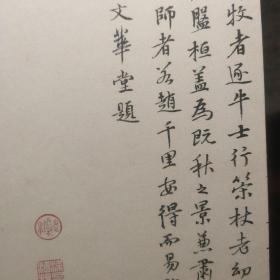 牧者逐牛士行策杖老幼
盤桓蓋為既秋之景兼肅
師者若趙千里安得而易
文華堂題